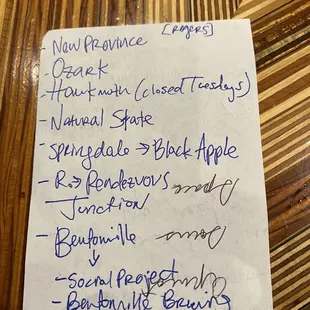 [ROGERS]
- New Province
- Ozark
- Hawkmoth (closed Tuesdays)
- Natural State
- Springdale → Black Apple
- R.→ Rendezvous
Junction
- Bentonville
↓
- Social Project
- Bentonville Brewing